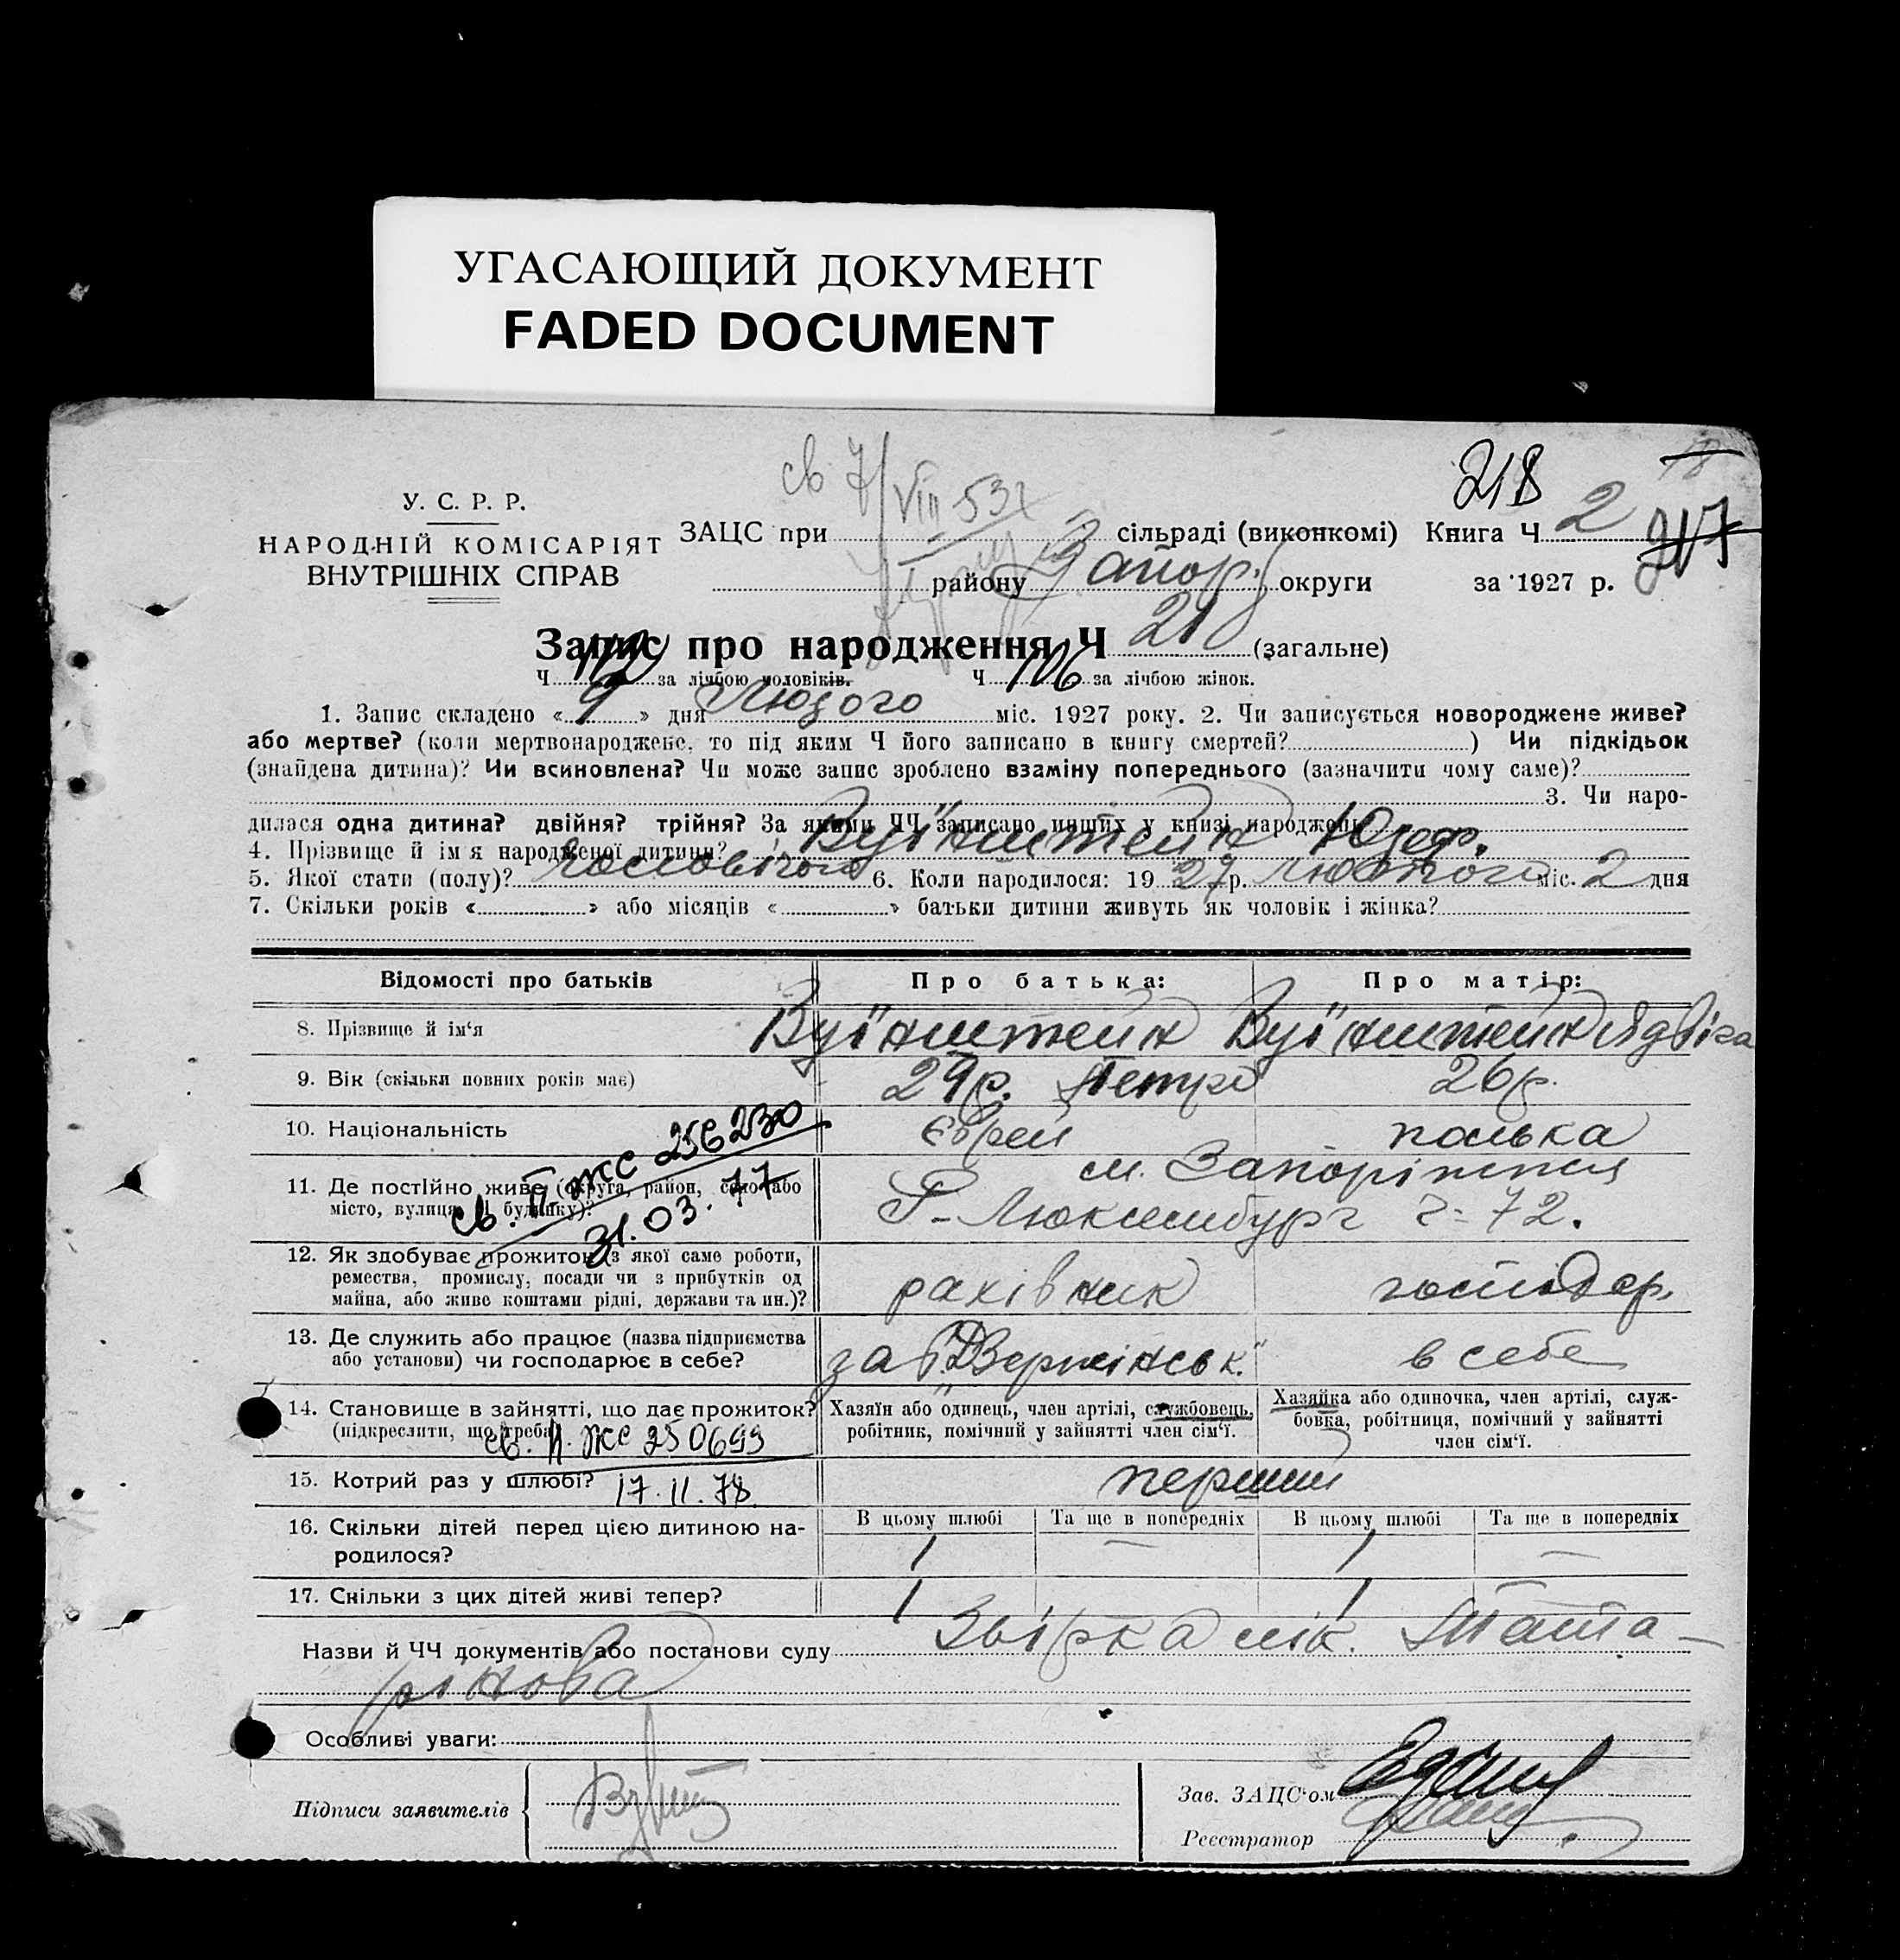 УГАСАЮЩИЙ ДОКУМЕНТ
FADED DOCUMENT
218
св 7/VIII 53
У. С. Р. Р.
НАРОДНІЙ КОМІСАРІЯТ
ВНУТРІШНІХ СПРАВ
ЗАЦС при сільраді (виконкомі) Книга Ч 2
217
району Запор. округи за 1927 р.
Запис про народження Ч 218 (загальне)
Ч 112 за лічбою чоловіків. Ч 106 за лічбою жінок.
1. Запис складено « 9 » дня Лютого міс. 1927 року. 2. Чи записується новороджене живе?
або мертве? (коли мертвонароджене, то під яким Ч його записано в книгу смертей? ) Чи підкідьок
(знайдена дитина)? Чи всиновлена? Чи може запис зроблено взаміну попереднього (зазначити чому саме)?
3. Чи наро-
дилася одна дитина? двійня? трійня? За якими ЧЧ записано инших у книзі народжень
4. Прізвище й ім'я народженої дитини? Вуїнштейн Юзеф.
5. Якої стати (полу)? Чоловічої 6. Коли народилося: 19 27 р. Лютого міс. 2 дня
7. Скільки років « » або місяців « » батьки дитини живуть як чоловік і жінка?
Відомості про батьків Про батька: Про матір:
8. Прізвище й ім'я Вуїнштейн Вуїнштейн Ядвіга
9. Вік (скільки повних років має) 29р. Петро 26р.
10. Національність Єврей полька
св. П ЖС 256230
31.03.77
11. Де постійно живе (округа, район, село або м. Запоріжжя
місто, вулиця й будинку)? Р-Люксембург 72.
12. Як здобуває прожиток (з якої саме роботи,
ремества, промислу, посади чи з прибутків од
майна, або живе коштами рідні, держави та ин.)? рахівник господар.
13. Де служить або працює (назва підприємства
або установи) чи господарює в себе? в себе
14. Становище в зайнятті, що дає прожиток? Хазяїн або одинець, член артілі, службовець, Хазяйка або одиночка, член артілі, служ-
(підкреслити, що треба) робітник, помічний у зайнятті член сім'ї. бовка, робітниця, помічний у зайнятті
член сім'ї.
св. П. ЖС 250699
15. Котрий раз у шлюбі? 17.11.78 перший
16. Скільки дітей перед цією дитиною на- В цьому шлюбі Та ще в попередніх В цьому шлюбі Та ще в попередніх
родилося? 1 — 1 —
17. Скільки з цих дітей живі тепер? 1 1
Назви й ЧЧ документів або постанови суду
Особливі уваги:
Підписи заявителів
Зав. ЗАЦС'ом
Реєстратор